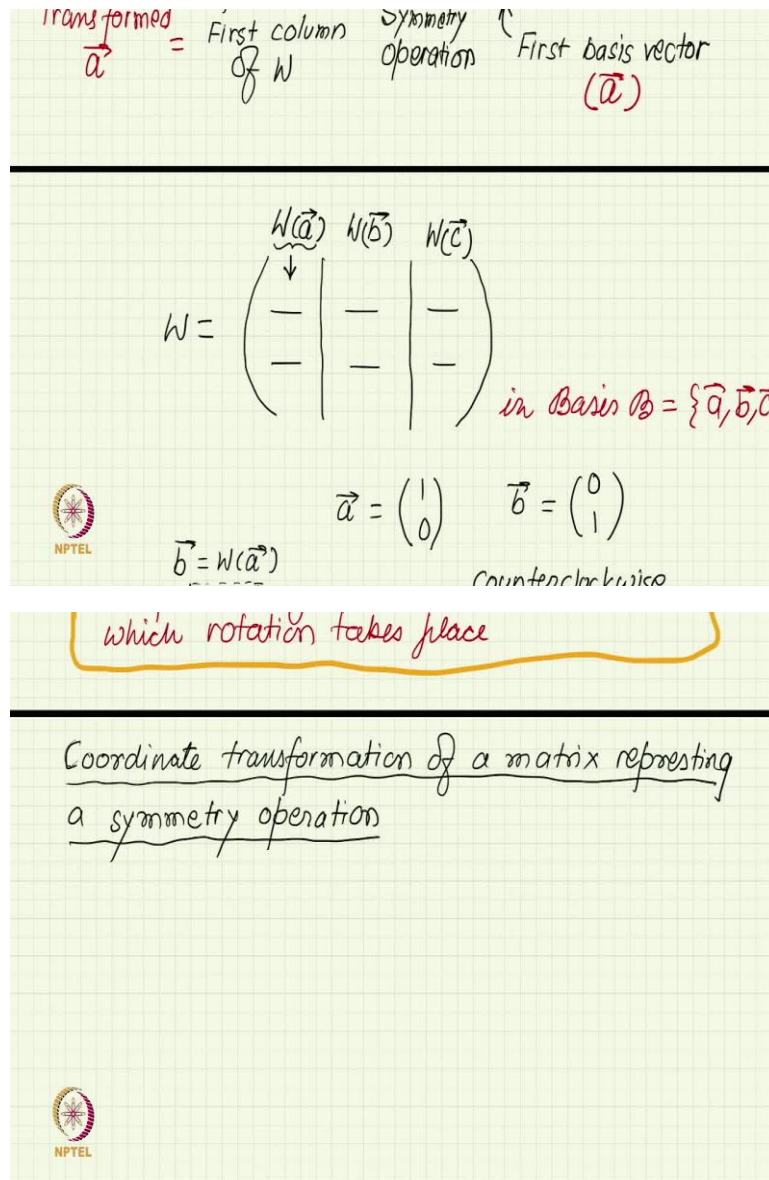 Transformed First column Symmetry
a⃗ = of W operation First basis vector
(a⃗)
W(a⃗) W(b⃗) W(c⃗)
↓
W =
in Basis B = {a⃗, b⃗, c
a⃗ = (1 0) b⃗ = (0 1)
NPTEL
b⃗ = W(a⃗)
Counterclockwise
which rotation takes place
Coordinate transformation of a matrix represting
a symmetry operation
NPTEL